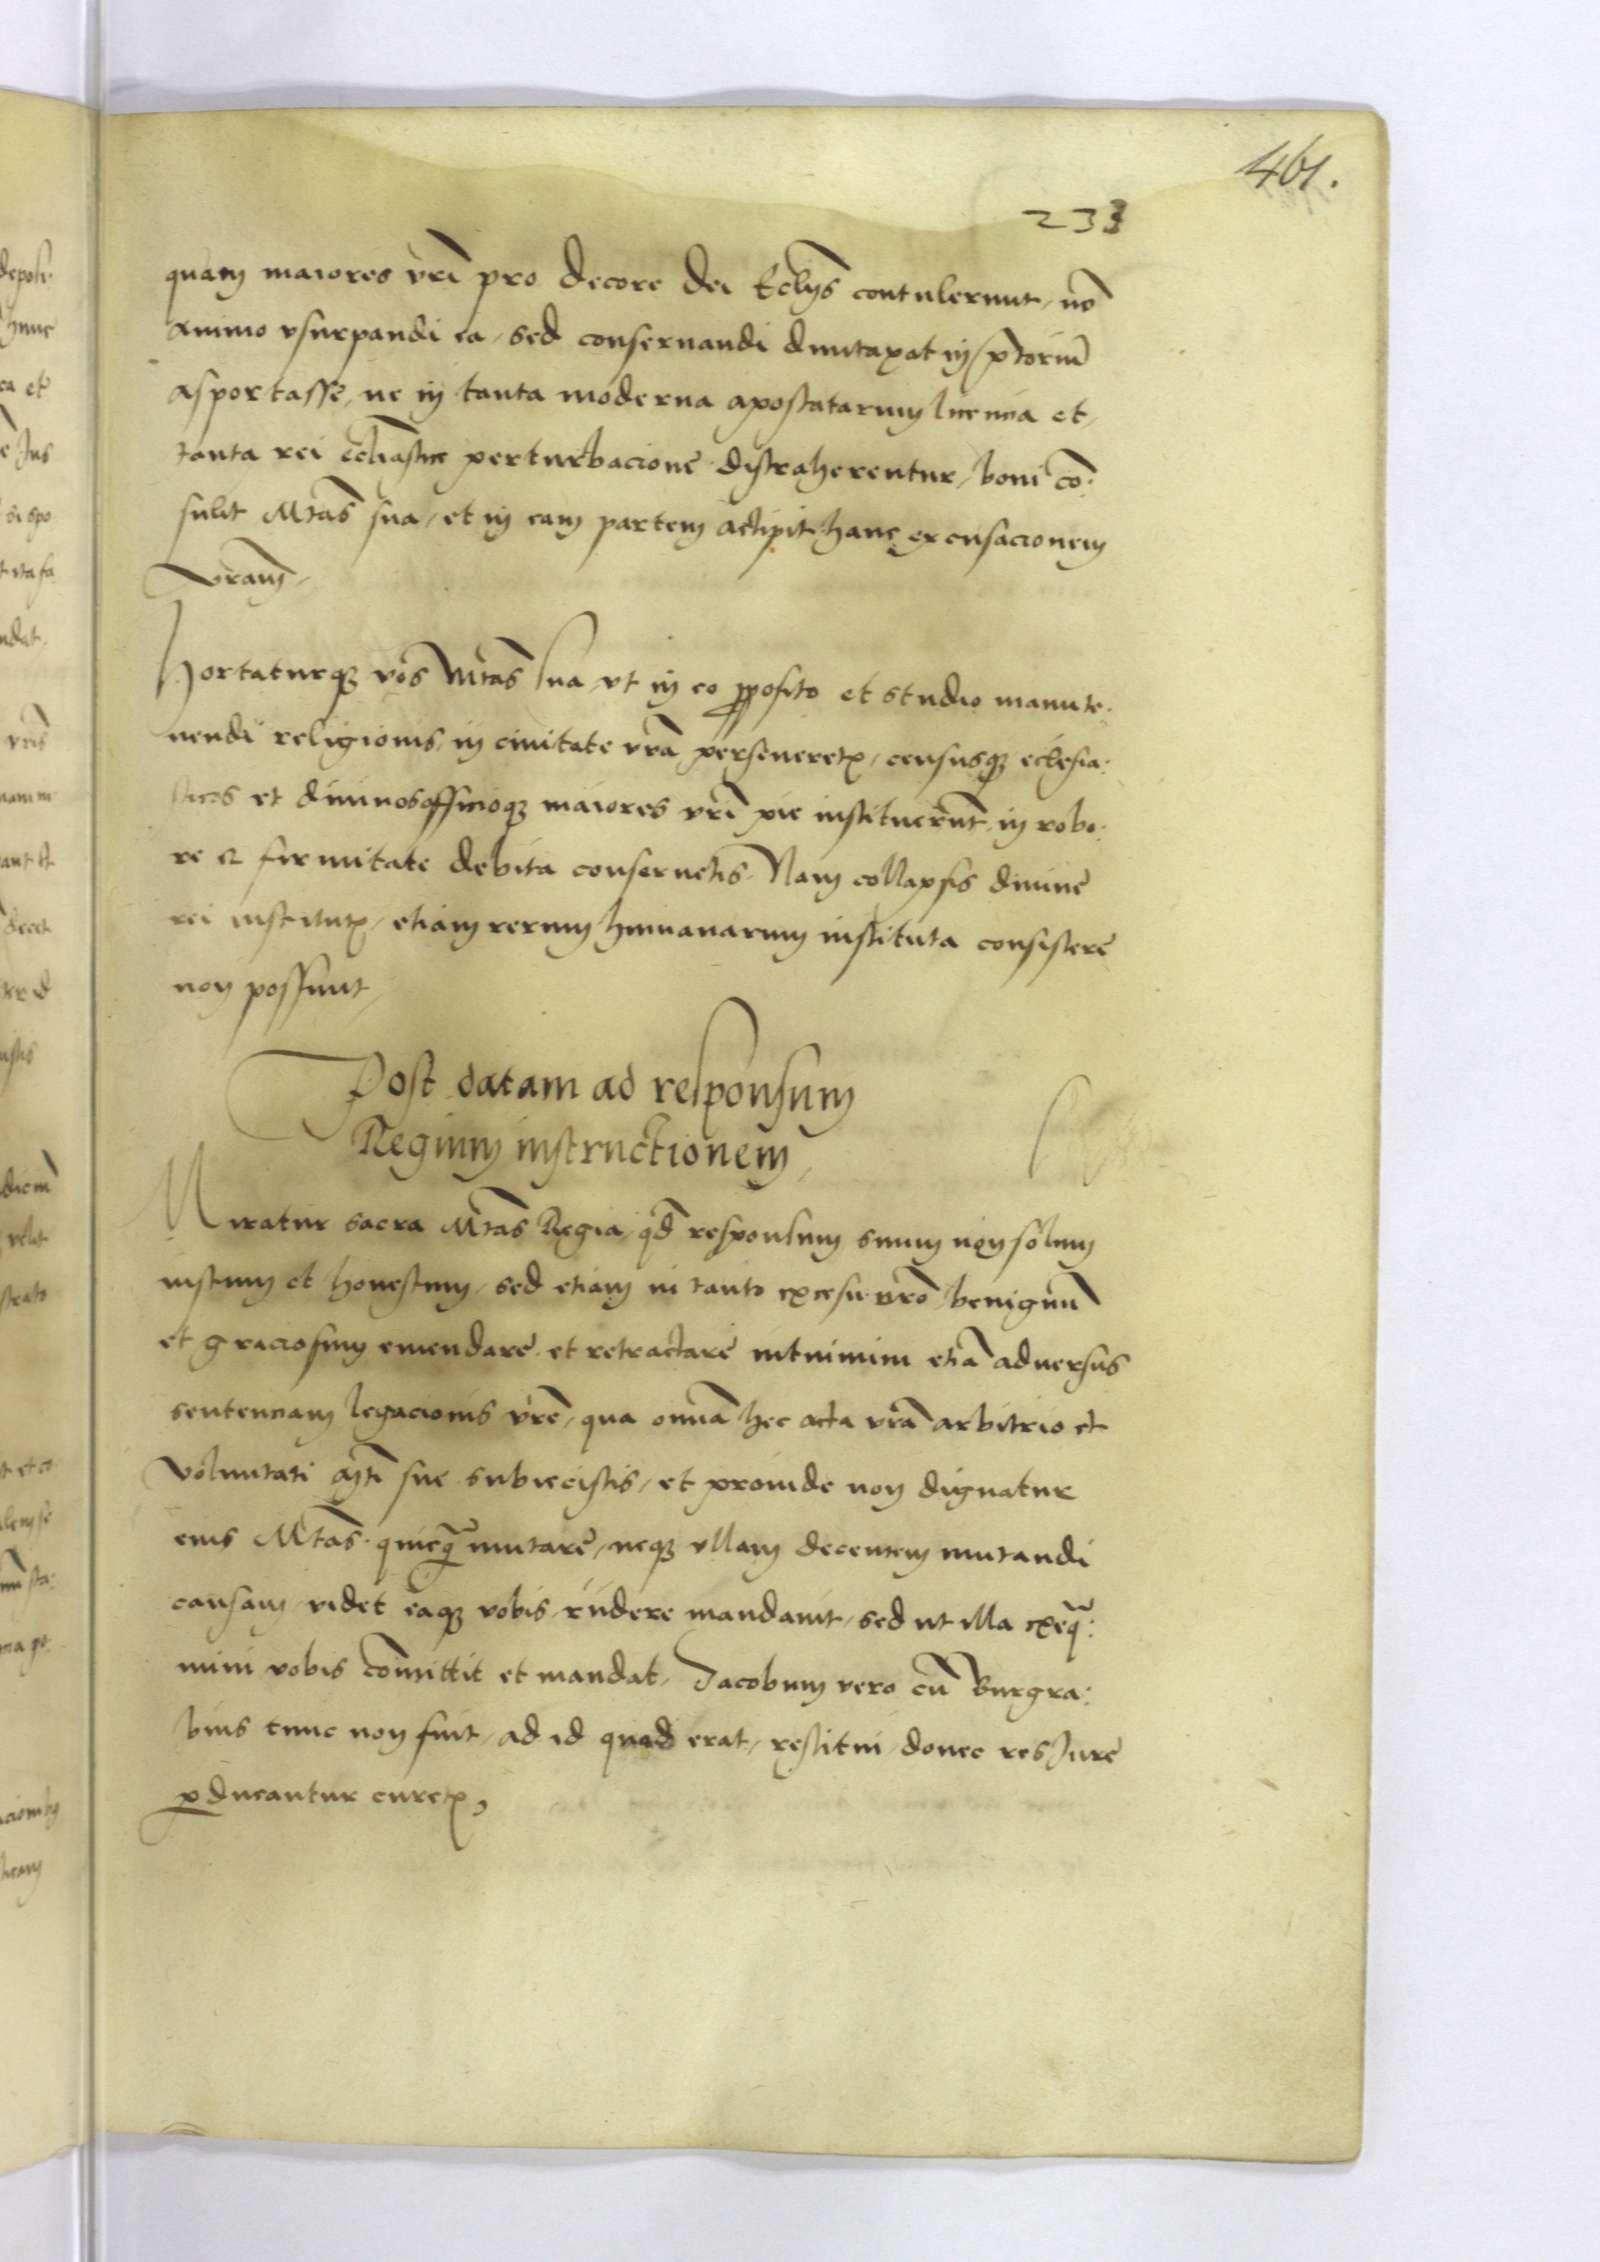 461.
233
quam maiores vri pro decore dei Ecclijs contulerunt, no
animo vsurpandi ea, sed conseruandi duntaxat in ptorium
asportasse, ne in tanta moderna apostatarum licencia et
tanta rei eccliastice perturbacione distraherentur, boni co:
sulit Mtas sua, et in eam partem accipit hanc excusacionem
vram,
Hortaturq vos Mtas sua vt in eo proposito et studio manute:
nendi religionis in ciuitate vra perseueretis, censusq ecclesia:
sticos et diuinos officioq maiores vri pie instituerunt, in robo:
re et firmitate debita conseruetis. Nam collapsis diuine
rei institutis, etiam rerum humanarum instituta consistere
non possunt,
Post datam ad responsum
Regium instructionem,
Miratur sacra Mtas Regia, qd responsum suum non solum
iustum et honestum, sed etiam in tanto excesu vro benignum
et graciosum emendare et retractare nitimini etia aduersus
sentenciam legacionis vre, qua omnia hec acta vra arbitrio et
voluntati Mti sue subiecistis, et proinde non dignatur
eius Mtas quicq mutare, neq vllam decentem mutandi
causam videt eaq vobis rndere mandauit, sed ut illa exeq:
mini vobis comittit et mandat, Jacobum vero cu Burgra:
bius tunc non fuit, ad id quod erat, restitui, donec res Jure
pducantur curetis,